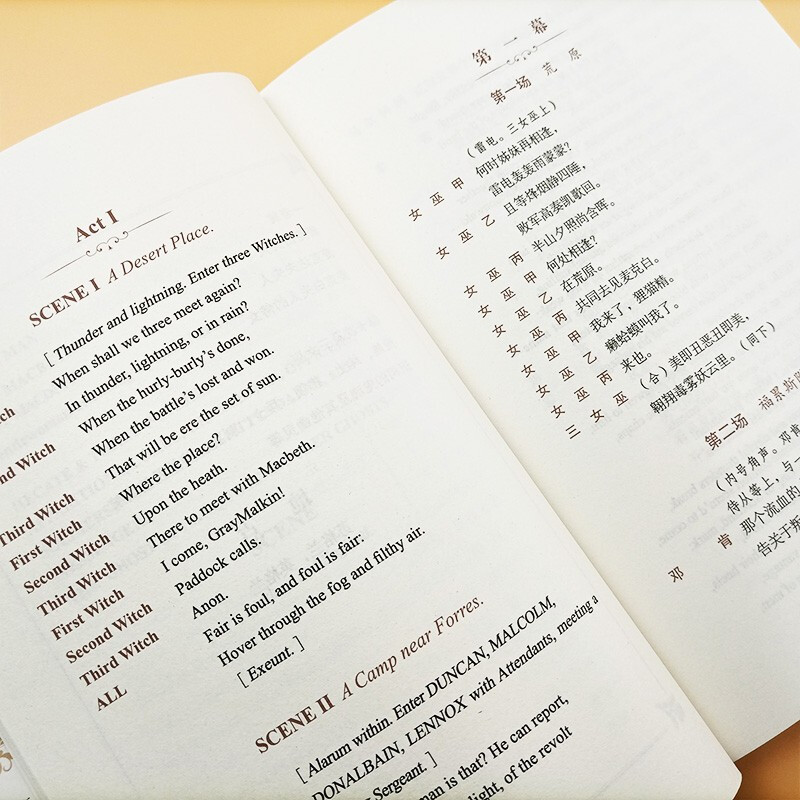 Act I
SCENE I A Desert Place.
[ Thunder and lightning. Enter three Witches. ]
When shall we three meet again?
In thunder, lightning, or in rain?
Witch When the hurly-burly's done,
When the battle's lost and won.
Third Witch That will be ere the set of sun.
First Witch Where the place?
Second Witch Upon the heath.
Third Witch There to meet with Macbeth.
First Witch I come, GrayMalkin!
Second Witch Paddock calls.
Third Witch Anon.
ALL Fair is foul, and foul is fair:
Hover through the fog and filthy air.
[ Exeunt. ]
SCENE II A Camp near Forres.
[ Alarum within. Enter DUNCAN, MALCOLM,
DONALBAIN, LENNOX with Attendants, meeting a
Sergeant. ]
man is that? He can report,
light, of the revolt
第一幕
第一场 荒原
（雷电。三女巫上）
女巫甲 何时姊妹再相逢，
雷电轰轰雨蒙蒙？
女巫乙 且等烽烟静四陲，
败军高奏凯歌回。
女巫丙 半山夕照尚含晖。
女巫甲 何处相逢？
女巫乙 在荒原。
女巫丙 共同去见麦克白。
女巫甲 我来了，狸猫精。
女巫乙 癞蛤蟆叫我了。
女巫丙 来也。
三女巫 （合）美即丑恶丑即美，
翱翔毒雾妖云里。（同下）
第二场 福累斯
（内号角声。邓肯
侍从等上，与一
邓肯 那个流血的
告关于叛